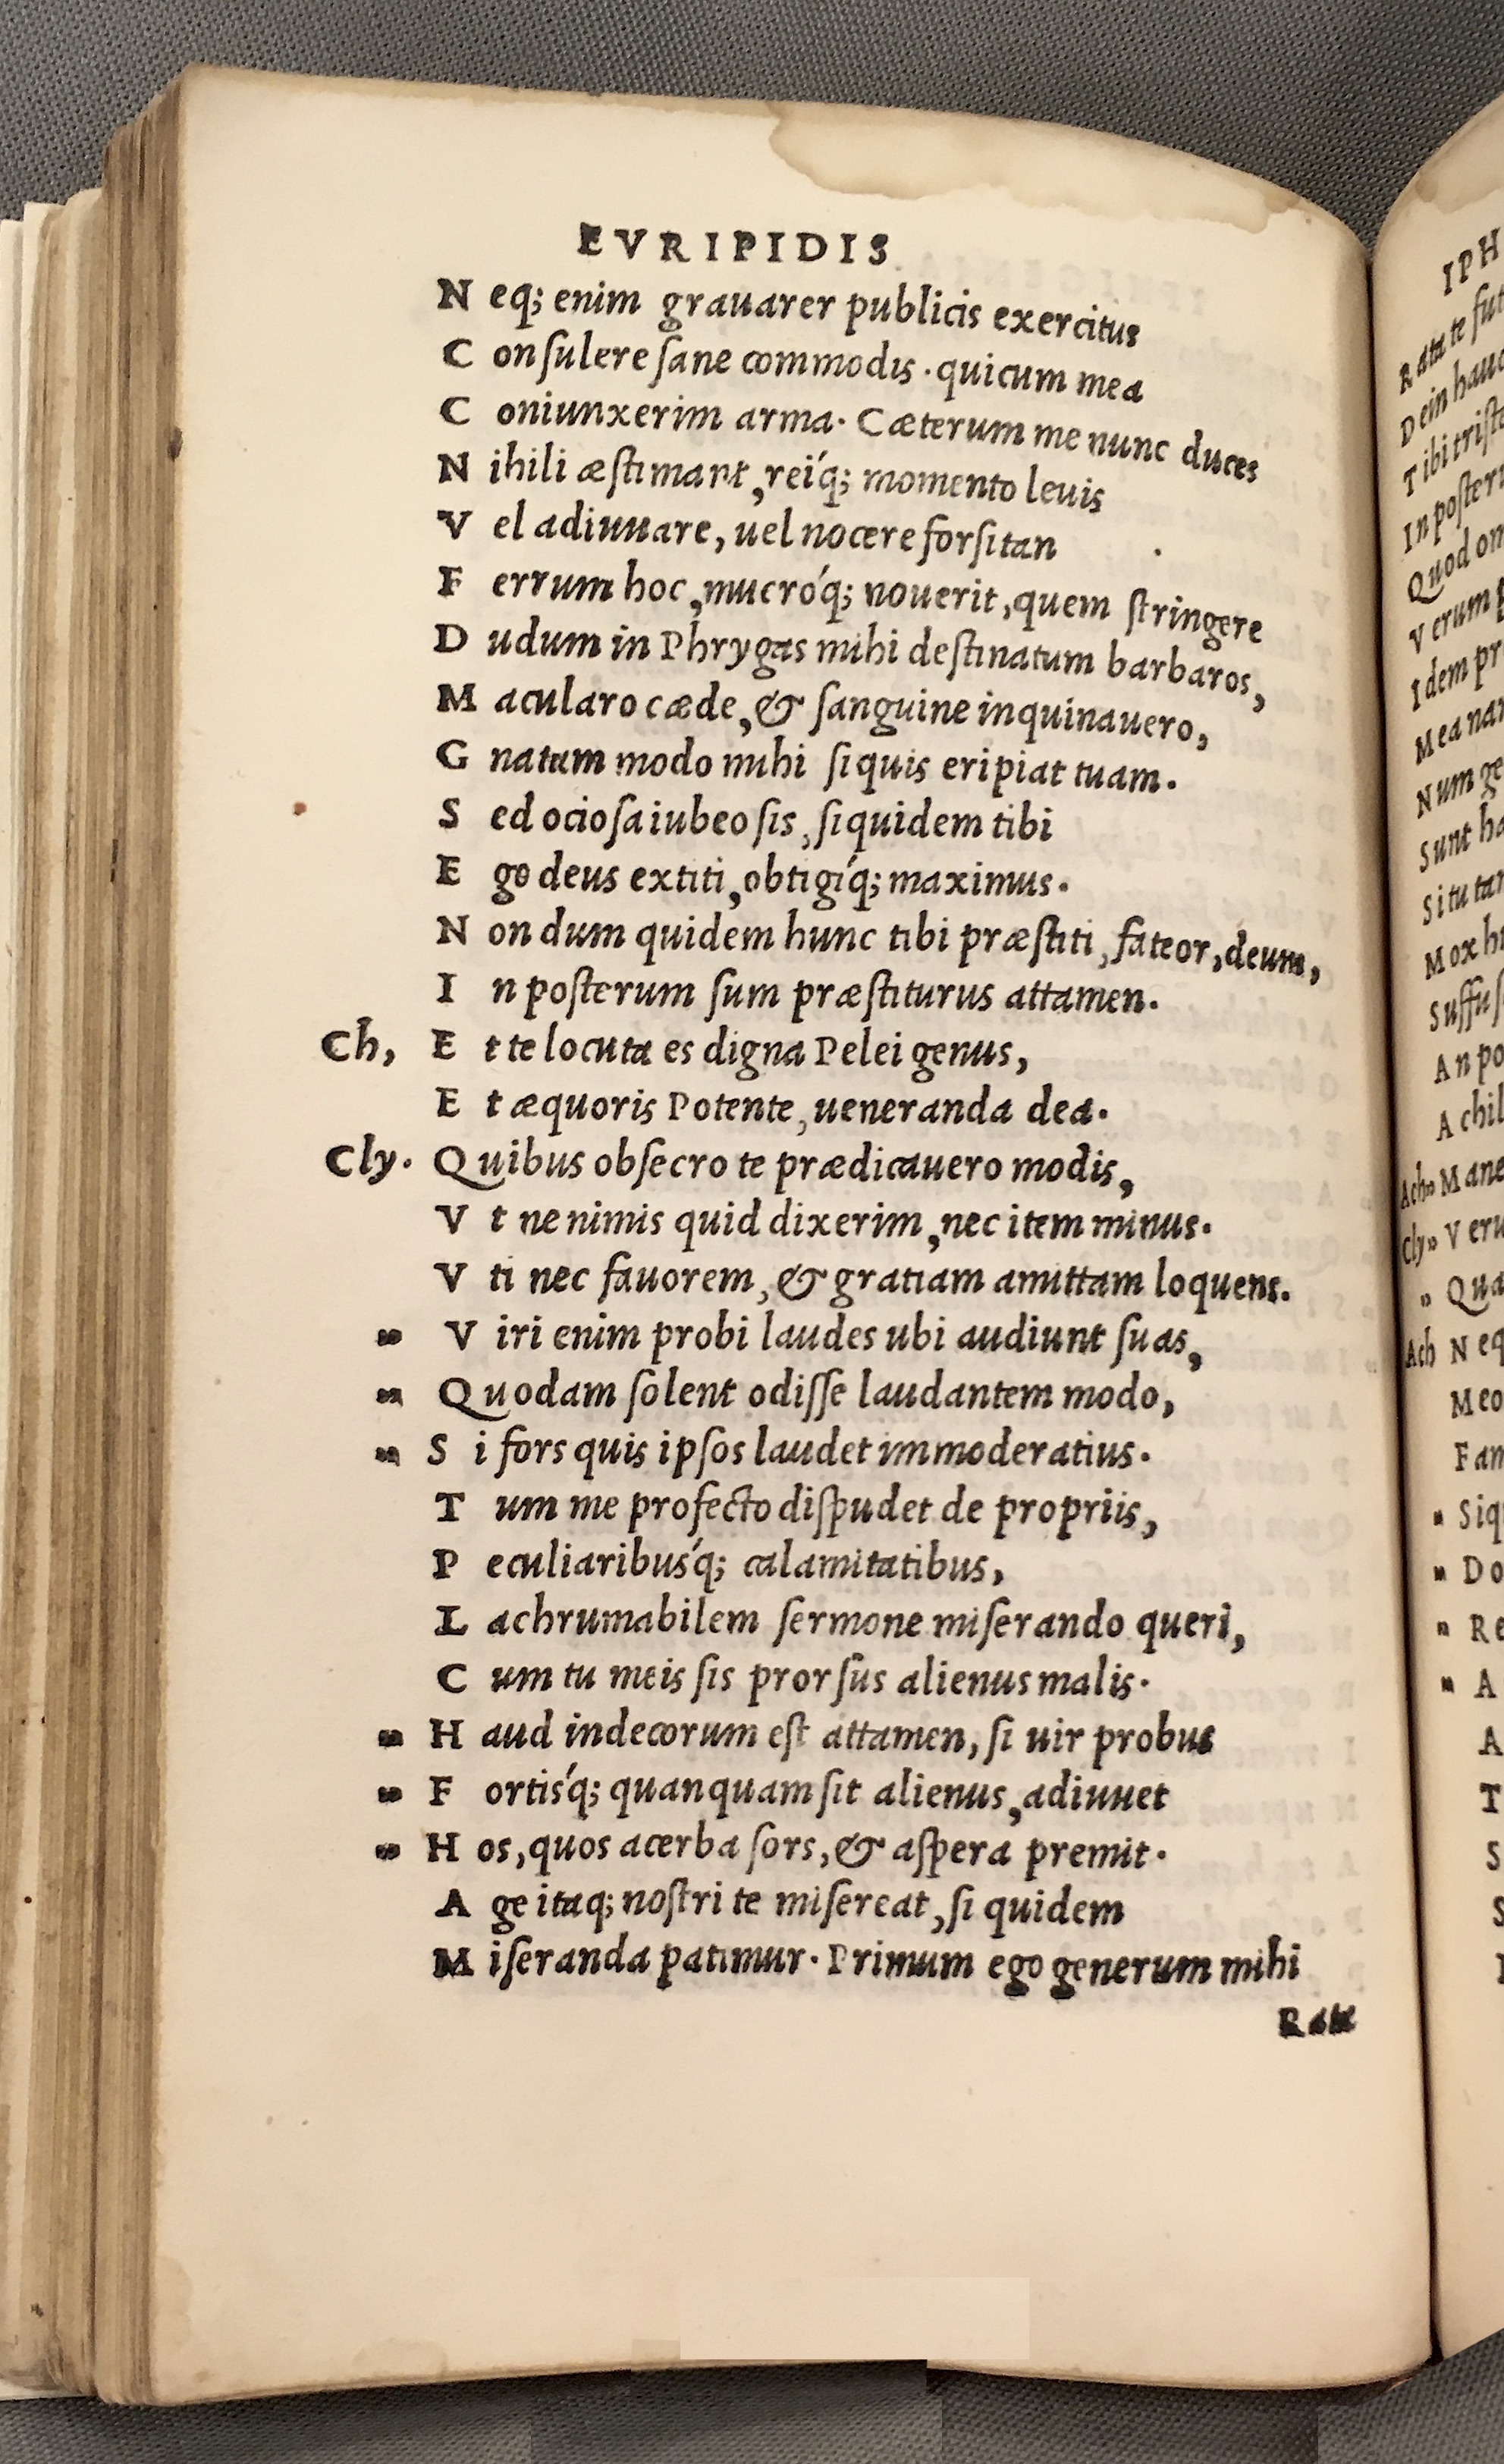 EVRIPIDIS
N eq; enim grauarer publicis exercitus
C onſulere ſane commodis. quicum mea
C oniunxerim arma. Cæterum me nunc duces
N ihili æſtimant, reíq; momento leuis
V el adiuuare, uel nocere forſitan
F errum hoc, mucróq; nouerit, quem ſtringere
D udum in Phrygas mihi deſtinatum barbaros,
M acularo cæde, & ſanguine inquinauero,
G natam modo mihi ſiquis eripiat tuam.
S ed ocioſa iubeo ſis, ſiquidem tibi
E go deus extiti, obtigíq; maximus.
N on dum quidem hunc tibi præſtiti, fateor, deum,
I n poſterum ſum præſtiturus attamen.
Ch, E t te locuta es digna Pelei genus,
E t æquoris Potente, ueneranda dea.
Cly. Q uibus obſecro te prædicauero modis,
V t ne nimis quid dixerim, nec item minus.
V ti nec fauorem, & gratiam amittam loquens.
" V iri enim probi laudes ubi audiunt ſuas,
" Q uodam ſolent odiſſe laudantem modo,
" S i fors quis ipſos laudet immoderatius.
T um me profecto diſpudet de propriis,
P eculiaribuśq; calamitatibus,
L achrumabilem ſermone miſerando queri,
C um tu meis ſis prorſus alienus malis.
" H aud indecorum eſt attamen, ſi uir probus
" F ortiśq; quanquam ſit alienus, adiuuet
" H os, quos acerba ſors, & aſpera premit.
A ge itaq; noſtri te miſereat, ſi quidem
M iſeranda patimur. Primum ego generum mihi
Rata
IPH
R ata te
D ein
T ibi
I n
Q uod
V erum
I dem
M ea
N um
S unt
S i tu
M ox
A n
Ach" M ane
Cly" V
" Q
Ach N
M
F
" S
" D
" R
" A
A
T
S
S